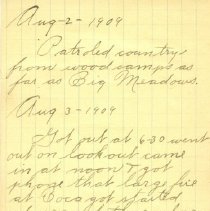 Aug-2-1909
Patroled country
from wood camps as
far as Big Meadows.
Aug 3-1909
Got out at 6-30 went
out on lookout came
in at noon & got
phone that large fire
at Coca got started